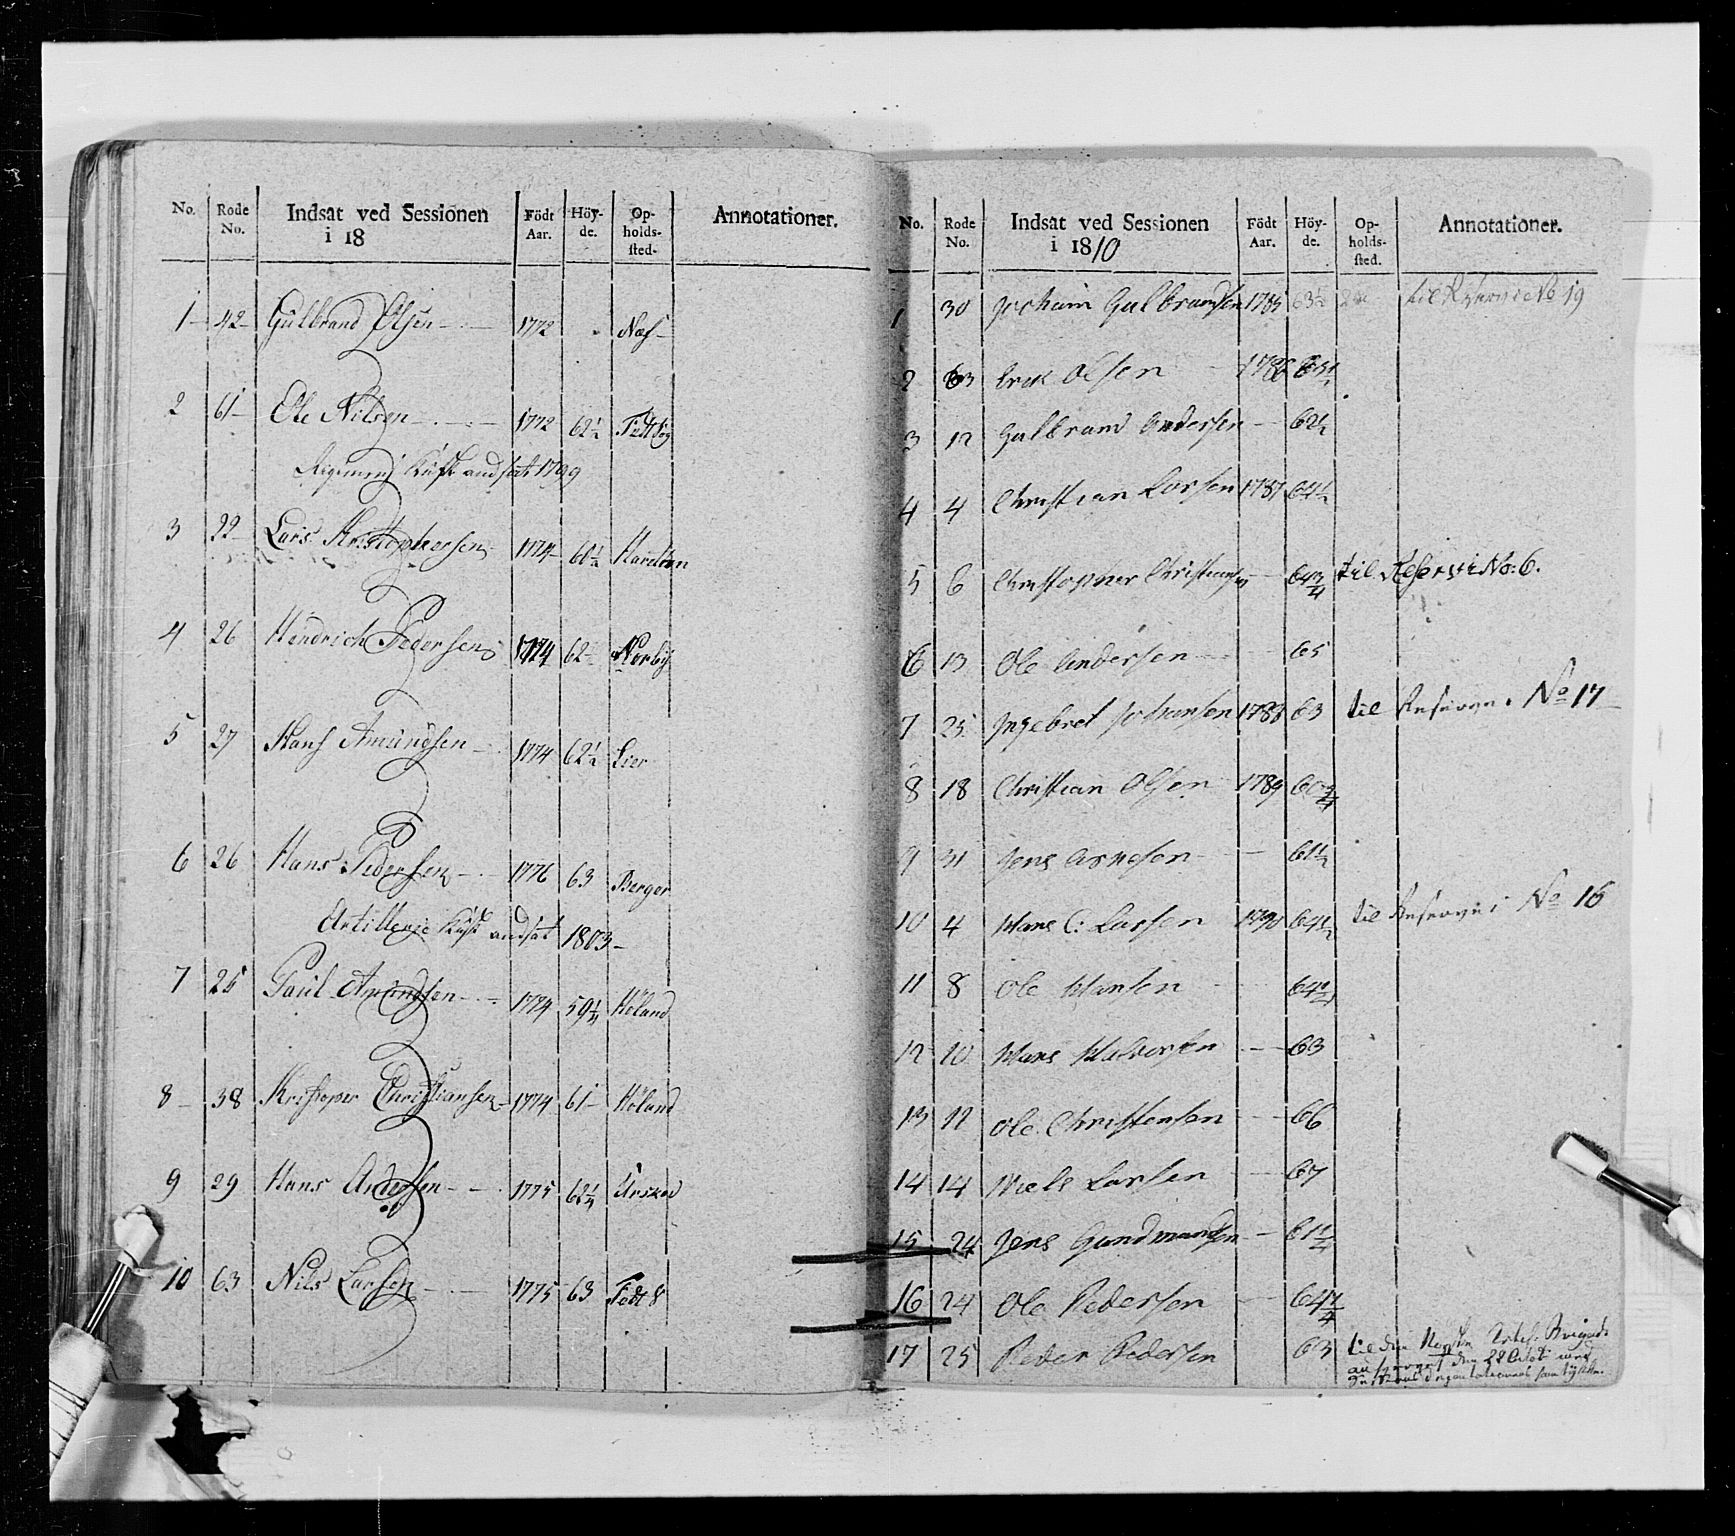 No. Rode No. Indsat ved Sessionen i 18 Födt Aar. Höyde. Opholdssted. Annotationer.
1 42 Gulbrand Olsen 1772 Næs
2 61 Ole Nilsen 1772 62½ Födt Sog
Kusk andsat 1799
3 22 Lars Kristophersen 1774 60½
4 26 Hendrich Pedersen 1774 62 Norby
5 27 Hans Amundsen 1774 62½ Lier
6 26 Hans Pedersen 1776 63 Berger
Artillerie Kusk andsat 1803
7 25 Paul Amundsen 1774 59¼ Höland
8 38 Kristoper Christiansen 1774 61 Höland
9 29 Hans Andersen 1775 62¼ Urskov
10 63 Nils Larsen 1775 63
No. Rode No. Indsat ved Sessionen i 1810 Födt Aar. Höyde. Opholdssted. Annotationer.
1 30 Jochum Gulbrandsen 1785 63½ til Reserve No 19
2 63 Erik Olsen 1786 63½
3 12 Gulbrand Andersen 62½
4 4 Christian Larsen 1787 64½
5 6 Christopher Christiansen 64¾ til Reserve No: 6.
6 13 Ole Andersen 65
7 25 Ingebret Johansen 1788 63 til Reserve No 17
8 18 Christian Olsen 1789 60¾
9 31 Jens Arnesen 61½
10 4 Hans C: Larsen 1790 64½ til Reserve No 16
11 8 Ole Hansen 64½
12 10 Hans Halvorsen 63
13 12 Ole Christensen 66
14 14 Niels Larsen 67
15 24 Jens Gundmundsen 61¼
16 24 Ole Pedersen 64¼
17 25 Peder Pedersen 63 til den Norske Brigade
den 28 Octob: